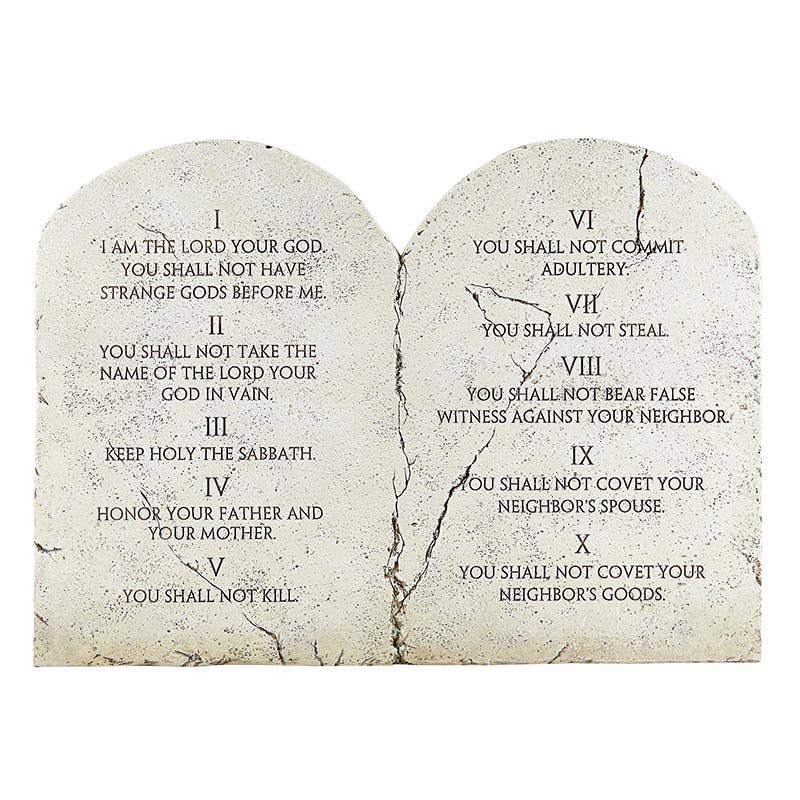 I
I AM THE LORD YOUR GOD.
YOU SHALL NOT HAVE
STRANGE GODS BEFORE ME.
II
YOU SHALL NOT TAKE THE
NAME OF THE LORD YOUR
GOD IN VAIN.
III
KEEP HOLY THE SABBATH.
IV
HONOR YOUR FATHER AND
YOUR MOTHER.
V
YOU SHALL NOT KILL.
VI
YOU SHALL NOT COMMIT
ADULTERY.
VII
YOU SHALL NOT STEAL.
VIII
YOU SHALL NOT BEAR FALSE
WITNESS AGAINST YOUR NEIGHBOR.
IX
YOU SHALL NOT COVET YOUR
NEIGHBOR'S SPOUSE.
X
YOU SHALL NOT COVET YOUR
NEIGHBOR'S GOODS.